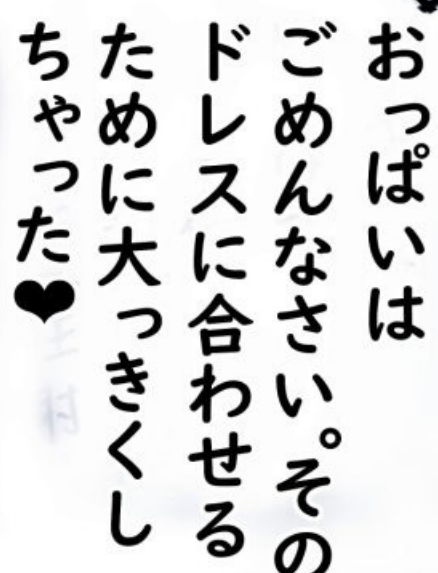 おっぱいは
ごめんなさい。その
ドレスに合わせる
ために大っきくし
ちゃった❤